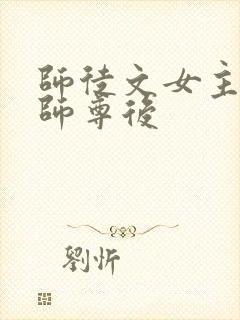 師徒文女主
師尊後
劉忻